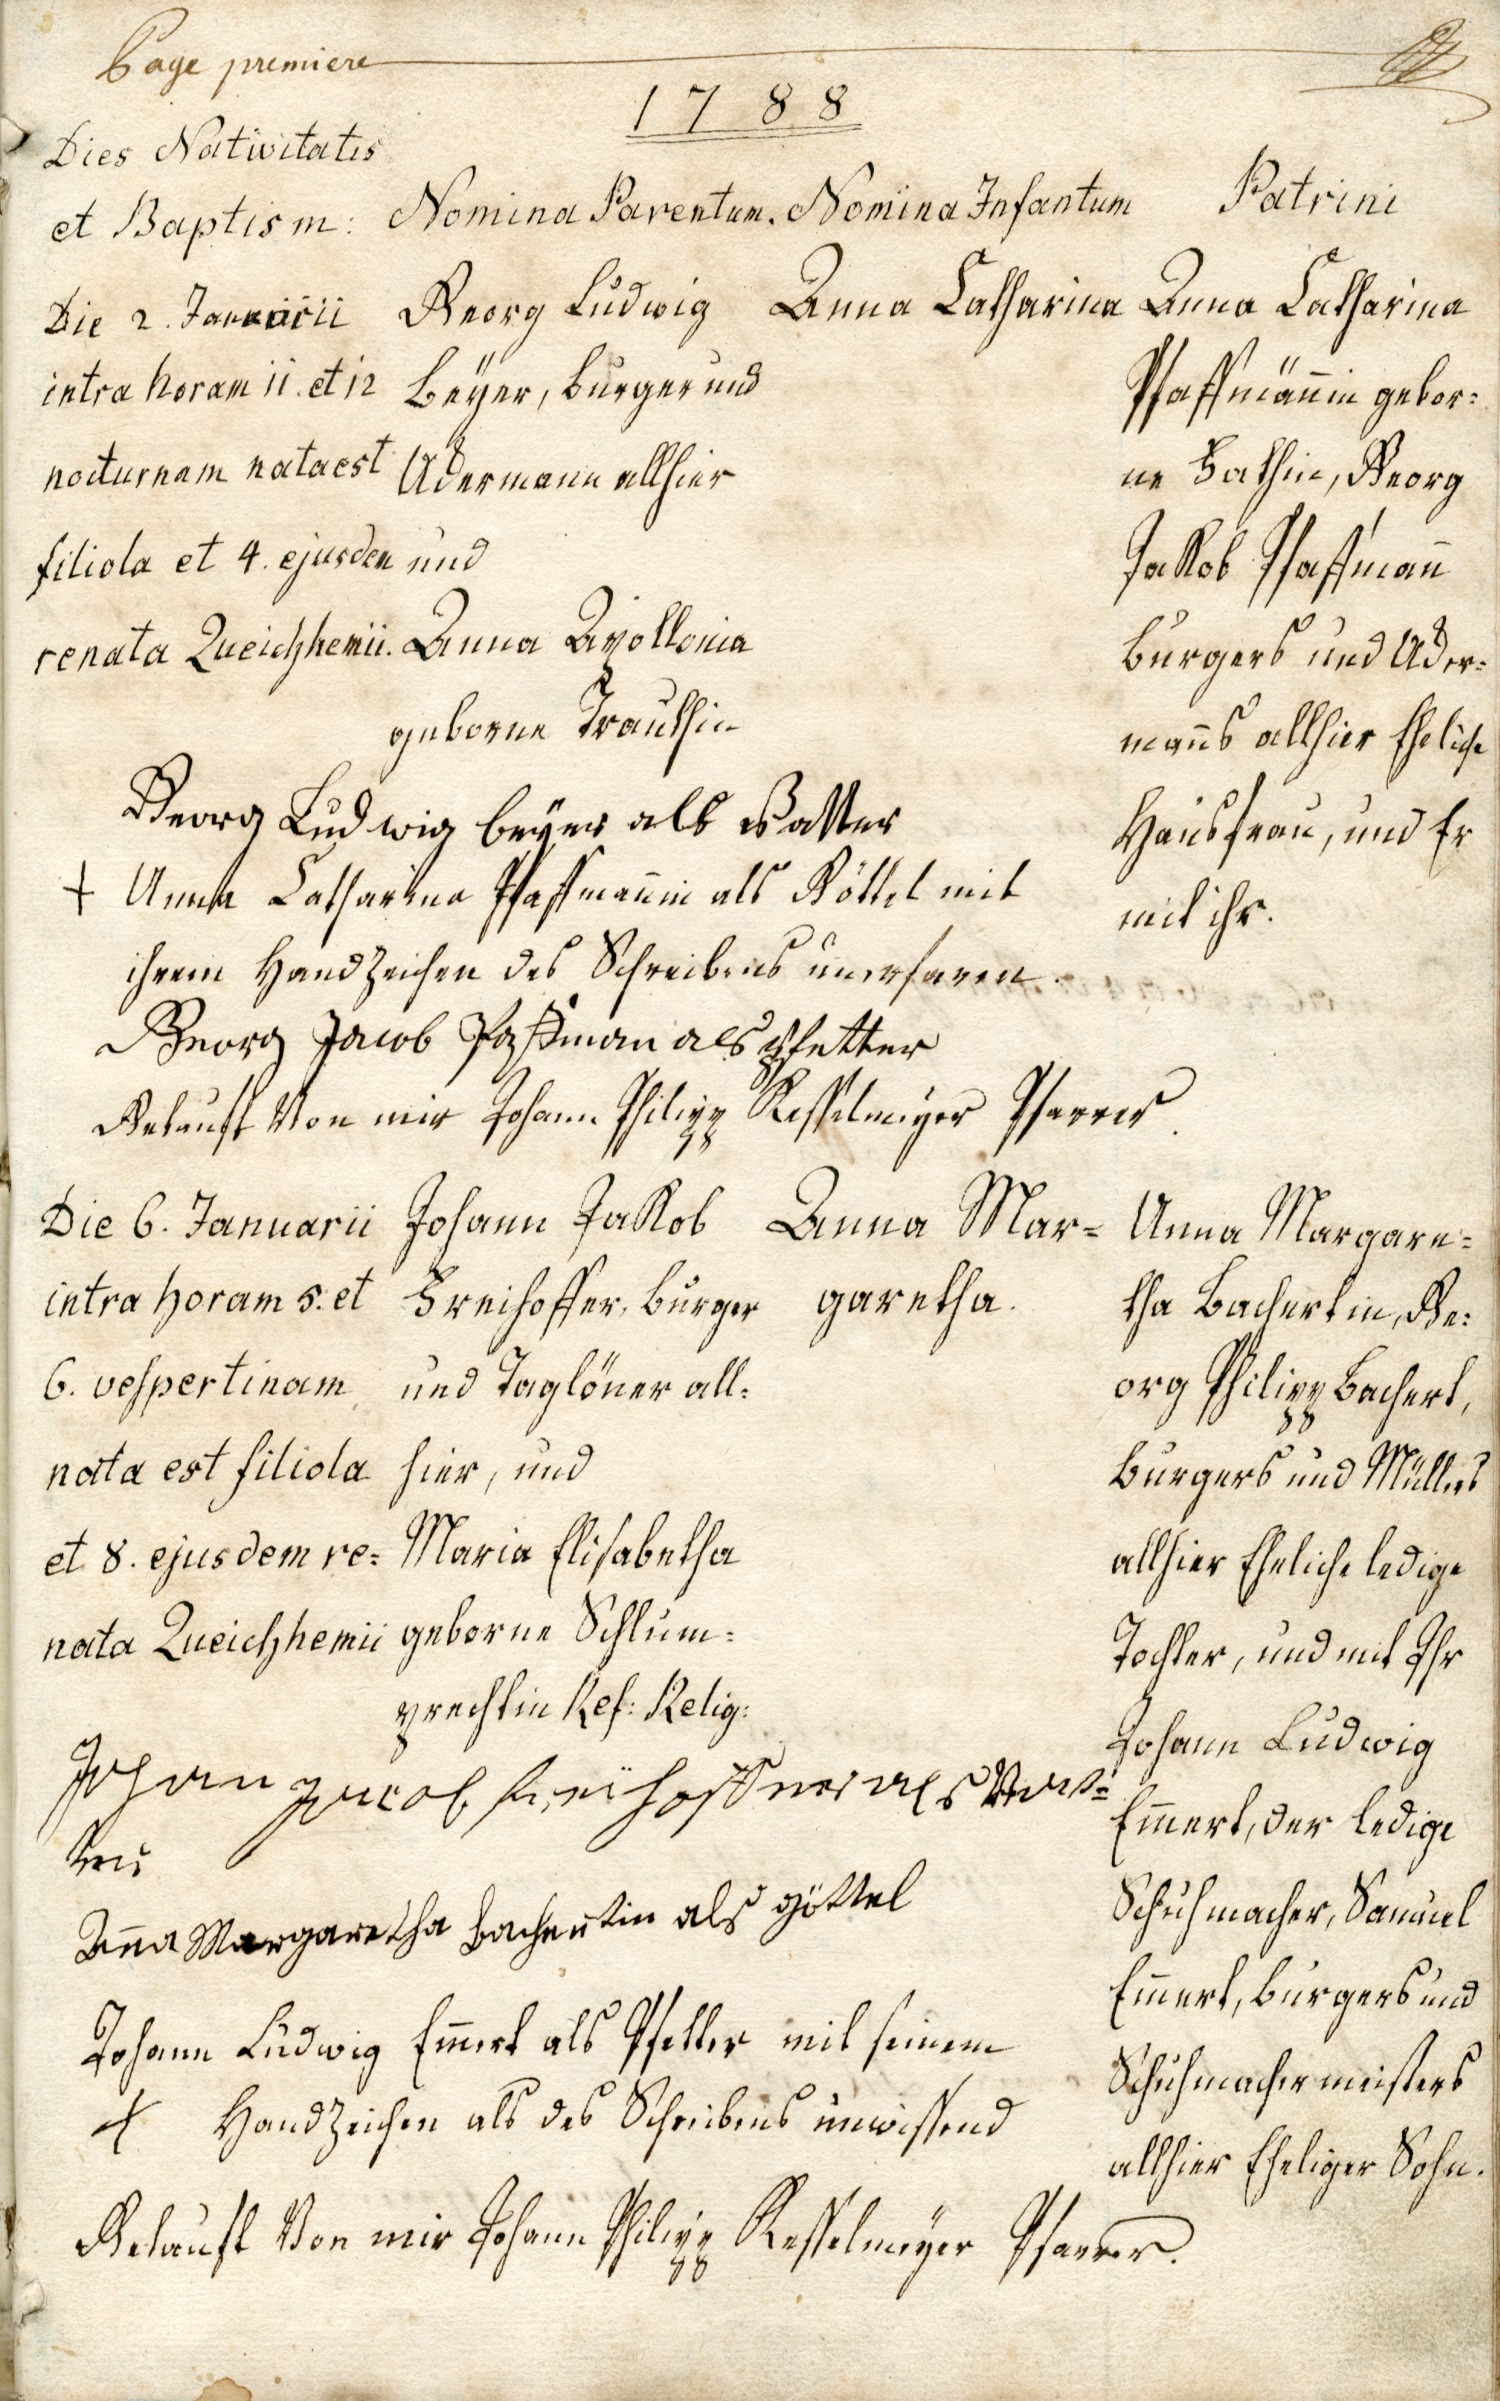 Page premiere
1788
Dies Nativitatis
et Baptism:
Nomina Parentum.
Nomina Infantum
Patrini
Die 2. Januarii
intra horam 11. et 12
nocturnam nata est
filiola et 4. ejusdem
renata Queichhemii.
Georg Ludwig
Beÿer, Burger und
Ackermann allhier
und
Anna Apollonia
geborne Trauthin
Anna Catharina
Anna Catharina
Pfaffmännin gebor=
ne Hathin, Georg
Jakob Pfaffmann
Burgers und Acker=
manns allhier Eheliche
Hausfrau, und Er
mit ihr.
Georg Ludwig beÿer als Vatter
+ Anna Catharina Pfaffmannin als Göttel mit
ihrem Handzeichen des Schreibens unerfaren.
Georg Jacob Pfaffman als pfetter
Getauft Von mir Johann Philipp Kesselmeÿer Pfarrer.
Die 6. Januarii
intra horam 5. et
6. vespertinam
nata est filiola
et 8. ejusdem re=
nata Queichhemii
Johann Jakob
Freihoffer, Burger
und Taglöner all=
hier, und
Maria Elisabetha
geborne Schlum=
prechtin Ref: Relig:
Anna Mar=
garetha.
Anna Margare=
tha Bachertin, Ge=
org Philipp Bachert,
Burgers und Müllers
allhier Eheliche ledige
Tochter, und mit Ihr
Johann Ludwig
Em̄ert, der ledige
Schuhmacher, Samuel
Em̄ert, Burgers und
Schuhmachermeisters
allhier Eheliger Sohn.
Johan Jacob freihoffer als Vat=
ter
An̄a Margaretha bachertin als göttel
Johann Ludwig Em̄ert als Pfetter mit seinem
+ Handzeichen als des Schreibens unwissend
Getauft Von mir Johann Philipp Kesselmeÿer Pfarrer.